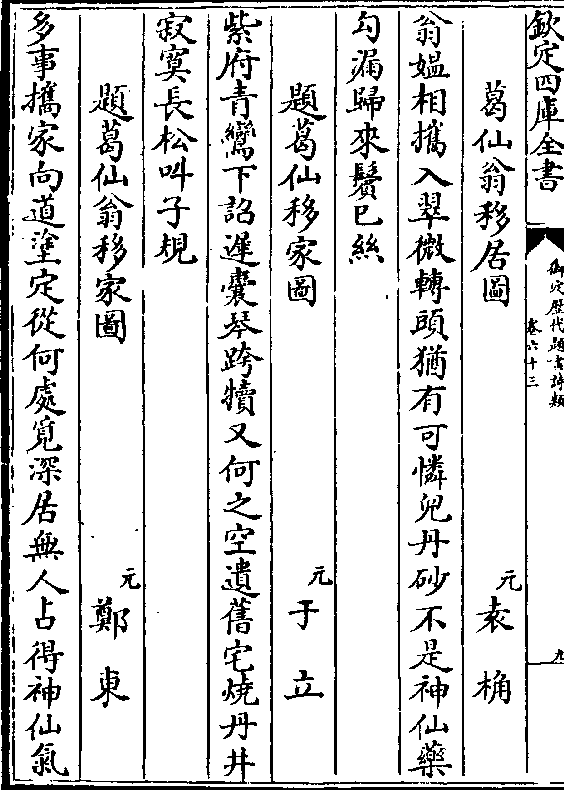 欽定四庫全書
御定歷代題畫詩類
卷六十三
九
葛仙翁移居圖
元
袁桷
翁媼相攜入翠微轉頭猶有可憐兒丹砂不是神仙藥
勾漏歸來鬢已絲
題葛仙移家圖
元
于立
紫府青鸞下詔遲囊琴跨犢又何之空遺舊宅燒丹井
寂寞長松叫子規
題葛仙翁移家圖
元
鄭東
多事攜家向道塗定從何處覓深居無人占得神仙氣